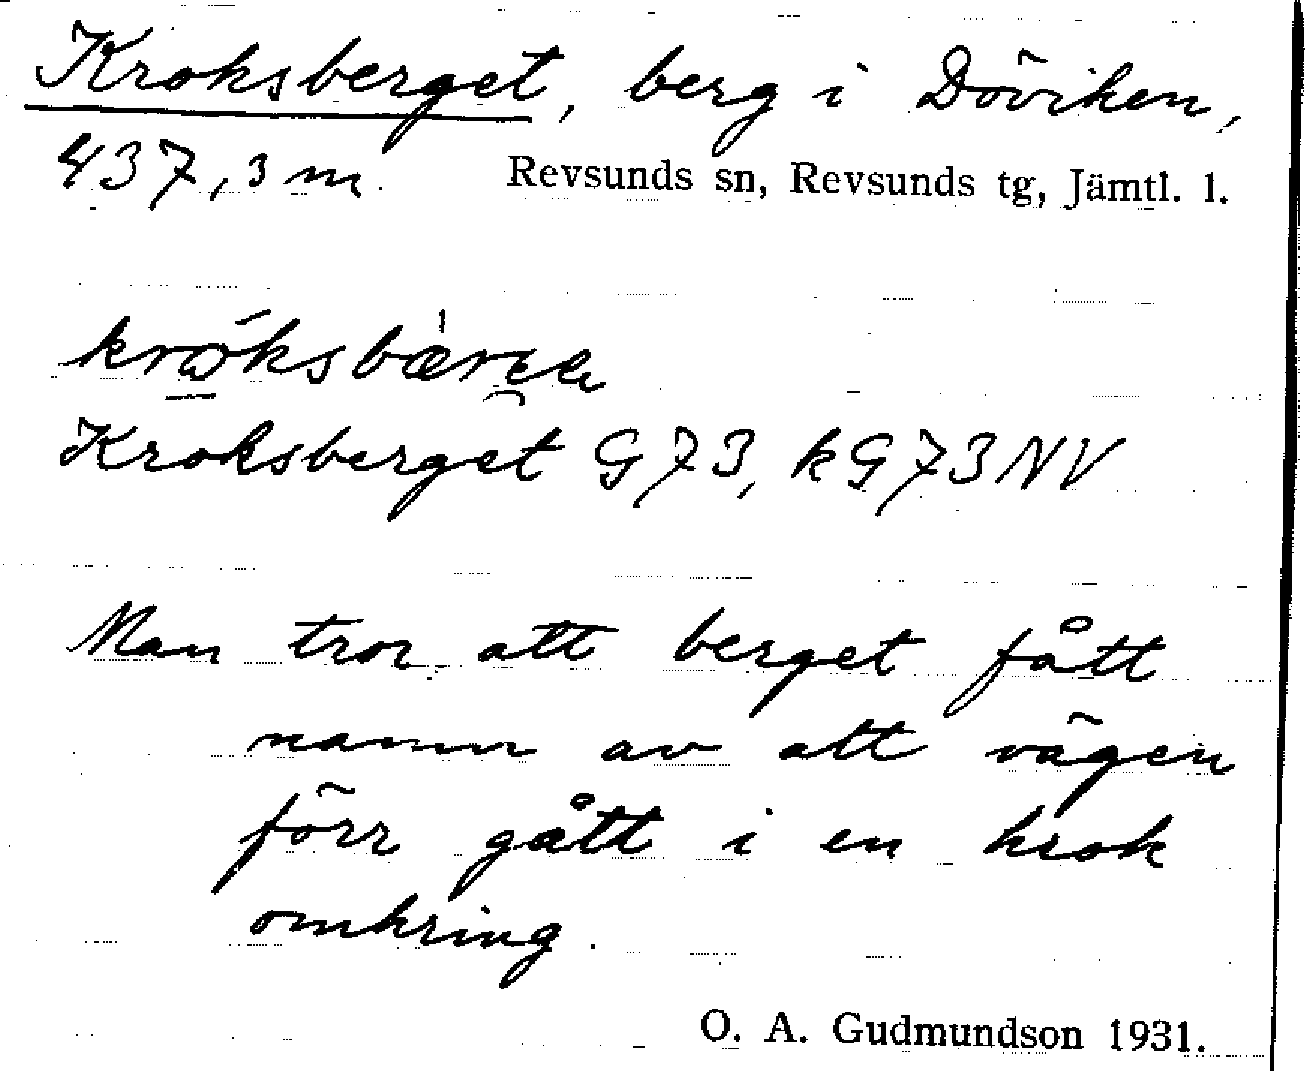 Kroksberget, berg i Döviken,
437,3 m. Revsunds sn, Revsunds tg, Jämtl. l.
Kroksberget G73, kG73NV
Man tror att berget fått
namn av att vägen
förr gått i en krok
omkring.
O. A. Gudmundson 1931.